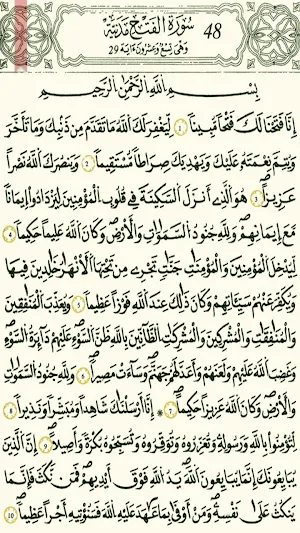 سُورَةُ الْفَتْحِ مَدَنِيَّةٌ 48
وَهِيَ تِسْعٌ وَعِشْرُونَ اٰيَةً 29
بِسْمِ اللّٰهِ الرَّحْمٰنِ الرَّحِيمِ
اِنَّا فَتَحْنَا لَكَ فَتْحًا مُبِينًا 1 لِيَغْفِرَ لَكَ اللّٰهُ مَا تَقَدَّمَ مِنْ ذَنْبِكَ وَمَا تَاَخَّرَ
وَيُتِمَّ نِعْمَتَهُ عَلَيْكَ وَيَهْدِيَكَ صِرَاطًا مُسْتَقِيمًا 2 وَيَنْصُرَكَ اللّٰهُ نَصْرًا
عَزِيزًا 3 هُوَ الَّذِى اَنْزَلَ السَّكِينَةَ فِى قُلُوبِ الْمُؤْمِنِينَ لِيَزْدَادُوا اِيمَانًا
مَعَ اِيمَانِهِمْ وَلِلّٰهِ جُنُودُ السَّمٰوَاتِ وَالْاَرْضِ وَكَانَ اللّٰهُ عَلِيمًا حَكِيمًا 4
لِيُدْخِلَ الْمُؤْمِنِينَ وَالْمُؤْمِنَاتِ جَنَّاتٍ تَجْرِى مِنْ تَحْتِهَا الْاَنْهَارُ خَالِدِينَ فِيهَا
وَيُكَفِّرَ عَنْهُمْ سَيِّاٰتِهِمْ وَكَانَ ذٰلِكَ عِنْدَ اللّٰهِ فَوْزًا عَظِيمًا 5 وَيُعَذِّبَ الْمُنَافِقِينَ
وَالْمُنَافِقَاتِ وَالْمُشْرِكِينَ وَالْمُشْرِكَاتِ الظَّانِّينَ بِاللّٰهِ ظَنَّ السَّوْءِ عَلَيْهِمْ دَائِرَةُ السَّوْءِ
وَغَضِبَ اللّٰهُ عَلَيْهِمْ وَلَعَنَهُمْ وَاَعَدَّ لَهُمْ جَهَنَّمَ وَسَاءَتْ مَصِيرًا 6 وَلِلّٰهِ جُنُودُ السَّمٰوَاتِ
وَالْاَرْضِ وَكَانَ اللّٰهُ عَزِيزًا حَكِيمًا 7 اِنَّا اَرْسَلْنَاكَ شَاهِدًا وَمُبَشِّرًا وَنَذِيرًا 8
لِتُؤْمِنُوا بِاللّٰهِ وَرَسُولِهِ وَتُعَزِّرُوهُ وَتُوَقِّرُوهُ وَتُسَبِّحُوهُ بُكْرَةً وَاَصِيلًا 9 اِنَّ الَّذِينَ
يُبَايِعُونَكَ اِنَّمَا يُبَايِعُونَ اللّٰهَ يَدُ اللّٰهِ فَوْقَ اَيْدِيهِمْ فَمَنْ نَكَثَ فَاِنَّمَا
يَنْكُثُ عَلٰى نَفْسِهِ وَمَنْ اَوْفٰى بِمَا عَاهَدَ عَلَيْهُ اللّٰهَ فَسَيُؤْتِيهِ اَجْرًا عَظِيمًا 10